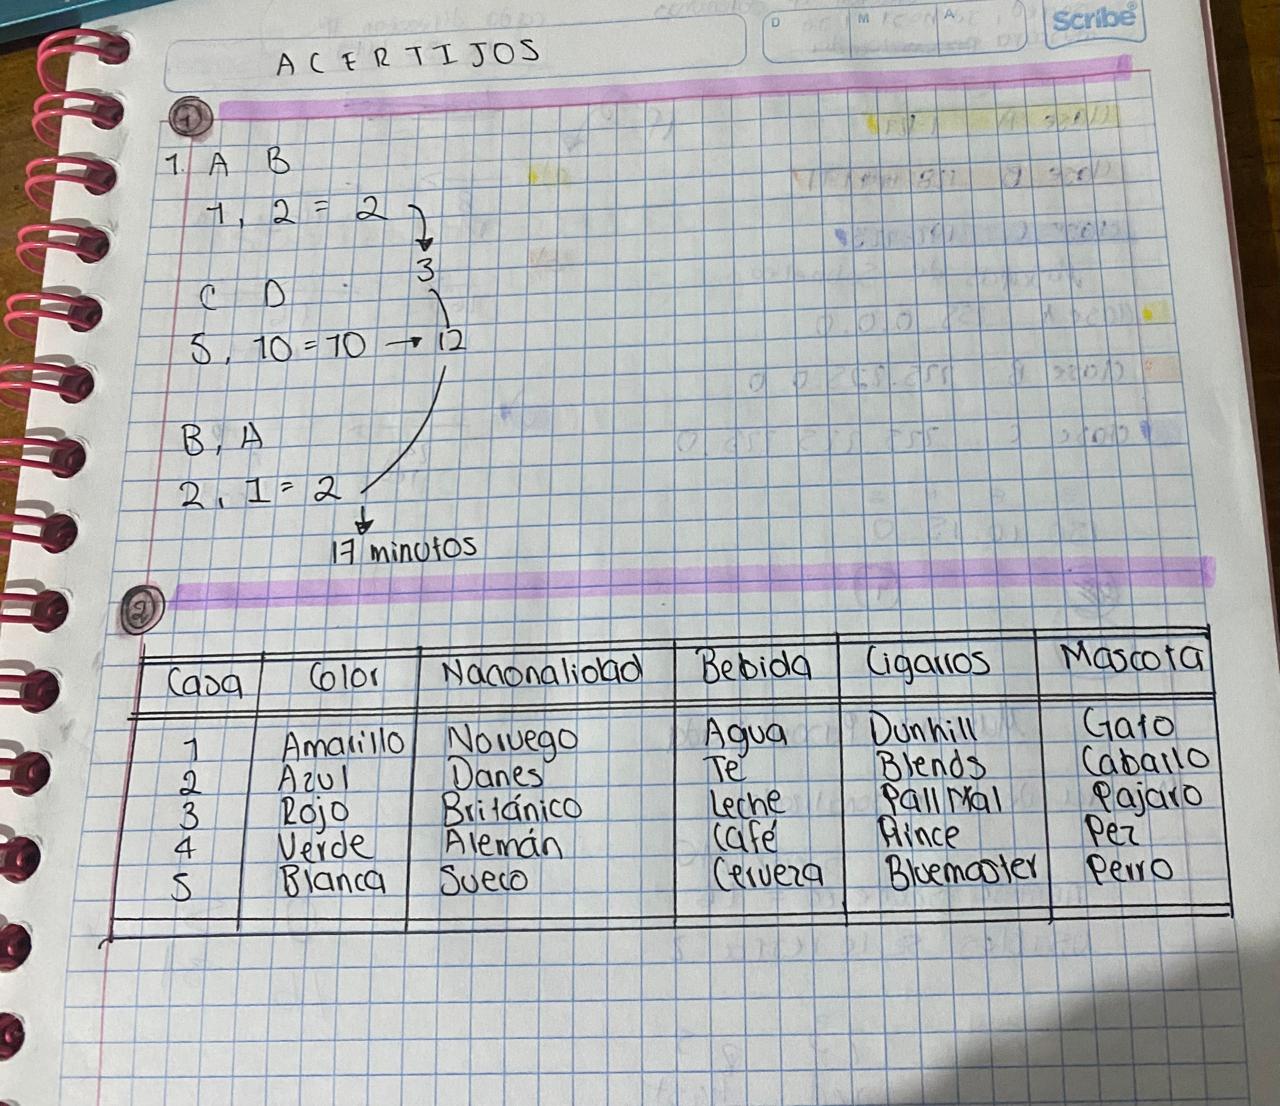 D M A
Scribe
ACERTIJOS
1
1. A B
1, 2 = 2
3
C D
5, 10 = 10 → 12
B, A
2, 1 = 2
17 minutos
2
Casa Color Nacionalidad Bebida Cigarros Mascota
1 Amarillo Noruego Agua Dunhill Gato
2 Azul Danes Te Blends Caballo
3 Rojo Británico Leche Pall Mal Pajaro
4 Verde Alemán Café Prince Pez
5 Blanca Sueco Cerveza Bluemaster Perro